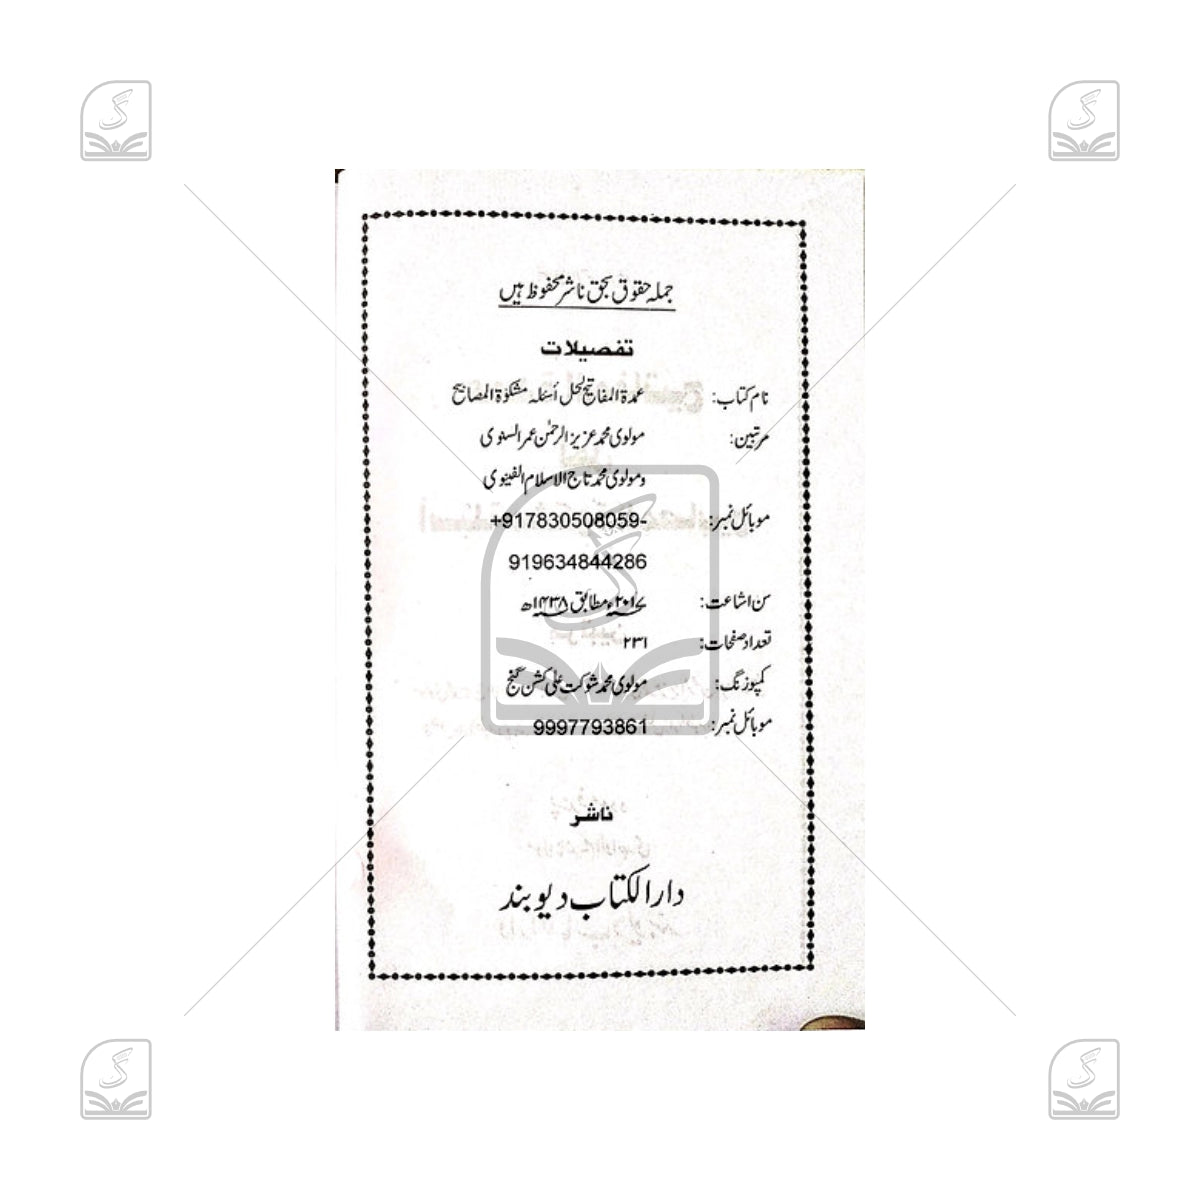 جملہ حقوق بحق ناشر محفوظ ہیں
تفصیلات
نام کتاب: عمدۃ المفاتیح لحل أسئلہ مشکوٰۃ المصابیح
مرتبین: مولوی محمد عزیز الرحمٰن عمر السنوی
ومولوی محمد تاج الاسلام الفینوی
موبائل نمبر: +917830508059-
919634844286
سن اشاعت: ۲۰۱۷ء مطابق ۱۴۳۸ھ
تعداد صفحات: ۲۳۱
کمپوزنگ: مولوی محمد شوکت علی کشن گنج
موبائل نمبر: 9997793861
ناشر
دار الکتاب دیوبند